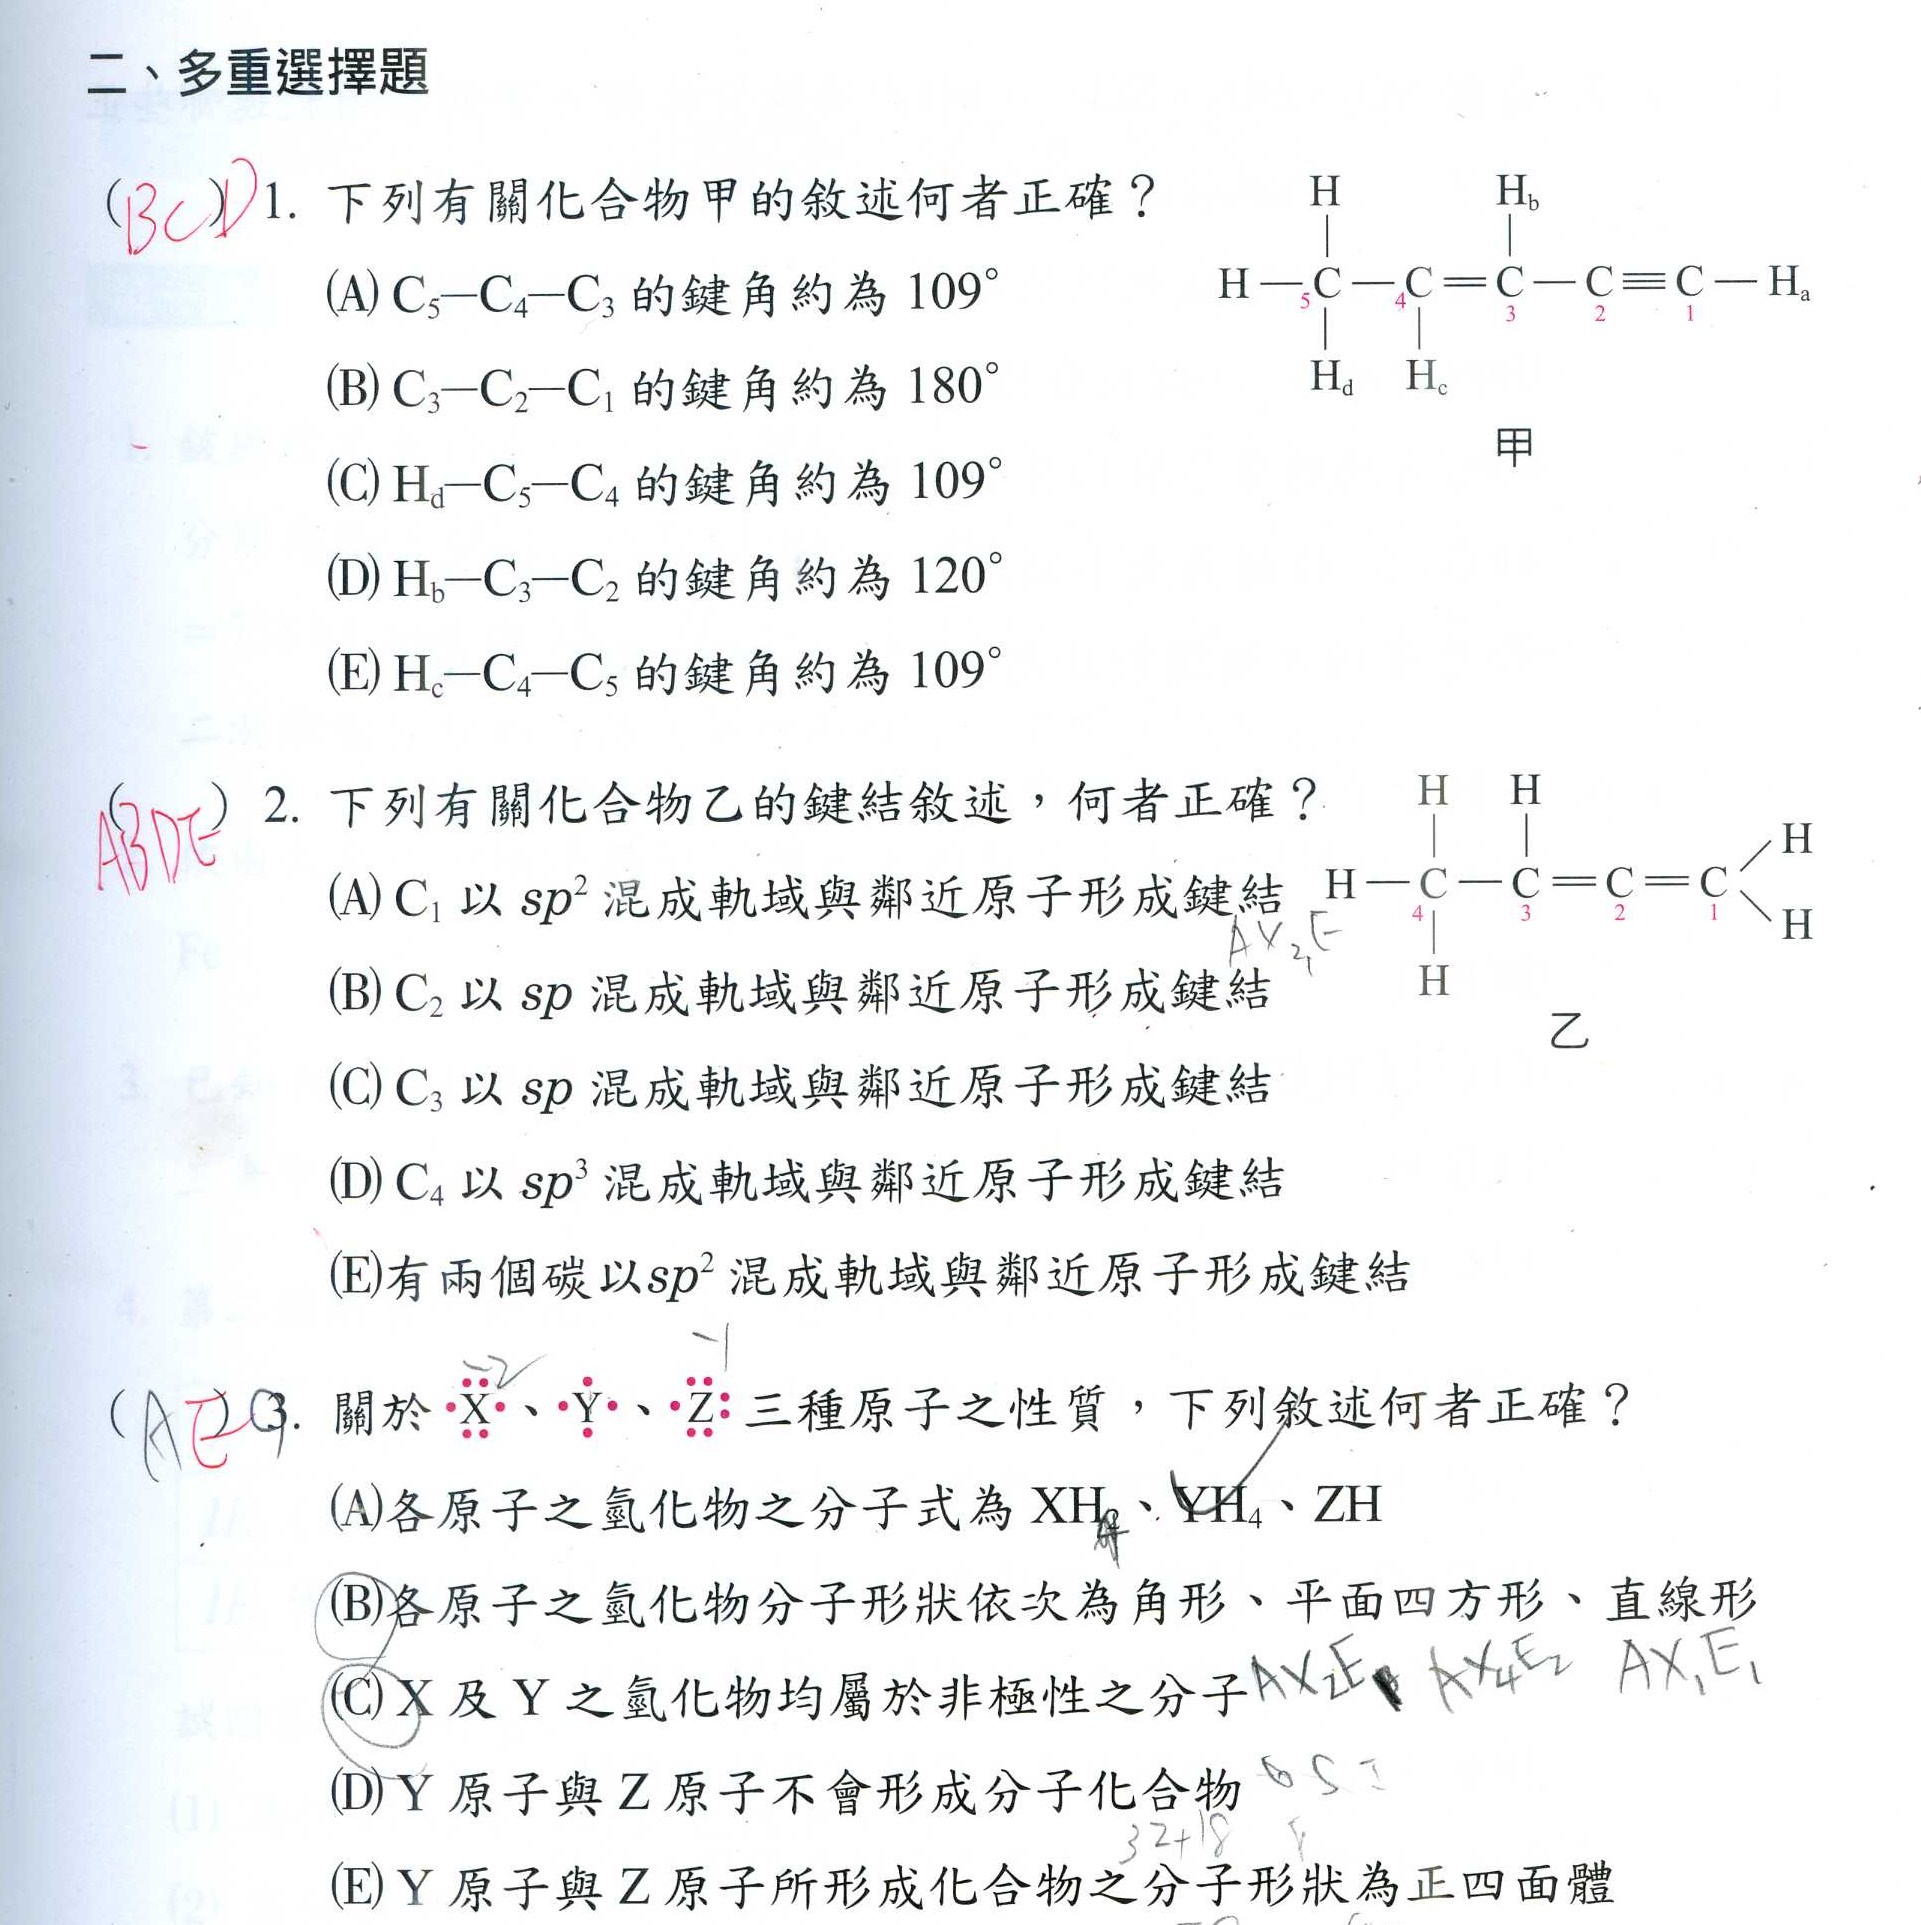 二、多重選擇題
(BCD) 1. 下列有關化合物甲的敘述何者正確？
(A) C₅—C₄—C₃ 的鍵角約為 109°
(B) C₃—C₂—C₁ 的鍵角約為 180°
(C) Hd—C₅—C₄ 的鍵角約為 109°
(D) Hb—C₃—C₂ 的鍵角約為 120°
(E) Hc—C₄—C₅ 的鍵角約為 109°
H Hb
H—C—C=C—C≡C—Ha
5 4 3 2 1
Hd Hc
甲
(ABDE) 2. 下列有關化合物乙的鍵結敘述，何者正確？
(A) C₁ 以 sp² 混成軌域與鄰近原子形成鍵結
(B) C₂ 以 sp 混成軌域與鄰近原子形成鍵結
(C) C₃ 以 sp 混成軌域與鄰近原子形成鍵結
(D) C₄ 以 sp³ 混成軌域與鄰近原子形成鍵結
(E)有兩個碳以sp² 混成軌域與鄰近原子形成鍵結
H H
H
H—C—C=C=C
4 3 2 1
H
H
乙
-2 -1
(AE) 3. 關於·X·、·Y·、·Z: 三種原子之性質，下列敘述何者正確？
(A)各原子之氫化物之分子式為 XH₂、YH₄、ZH
(B)各原子之氫化物分子形狀依次為角形、平面四方形、直線形
AX₂E AX₄E₂ AX₁E₁
(C) X 及 Y 之氫化物均屬於非極性之分子
(D) Y 原子與 Z 原子不會形成分子化合物
32+18
(E) Y 原子與 Z 原子所形成化合物之分子形狀為正四面體